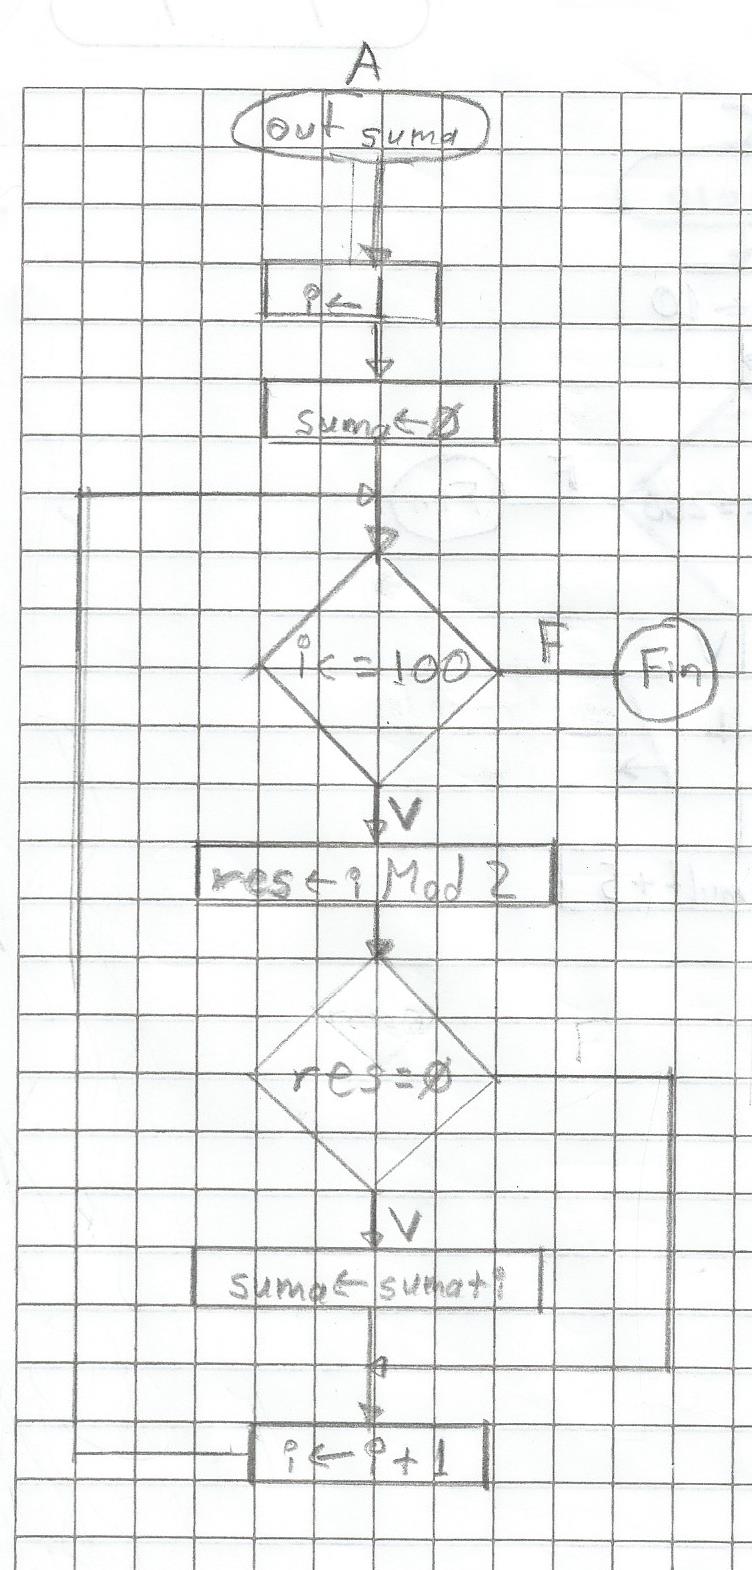 A
out suma
i← 1
suma←Ø
i<=100
F
Fin
V
res←i Mod 2
res=Ø
V
suma←suma+i
i←i+1